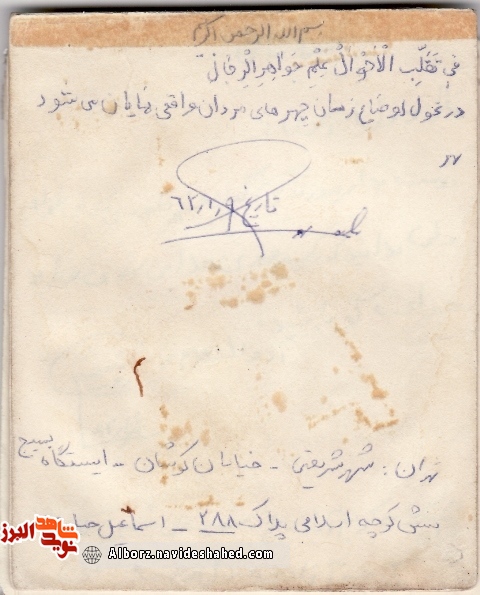 بسم الله الرحمن الرحیم
فِی تَقَلُّبِ الْاَحْوالُ عُلِمَ جَواهِرِ الْرِجالْ
در تحول اوضاع زمان چهره های مردان واقعی نمایان می شود
تاریخ ۶۲٫۱٫۹
۲
تهران: شهر شریعتی - خیابان کوشان - ایستگاه بسیج
نبش کوچه اسلامی پلاک ۲۸۸ - اسماعیل
شاهد
نوید
البرز
Alborz.navideshahed.com